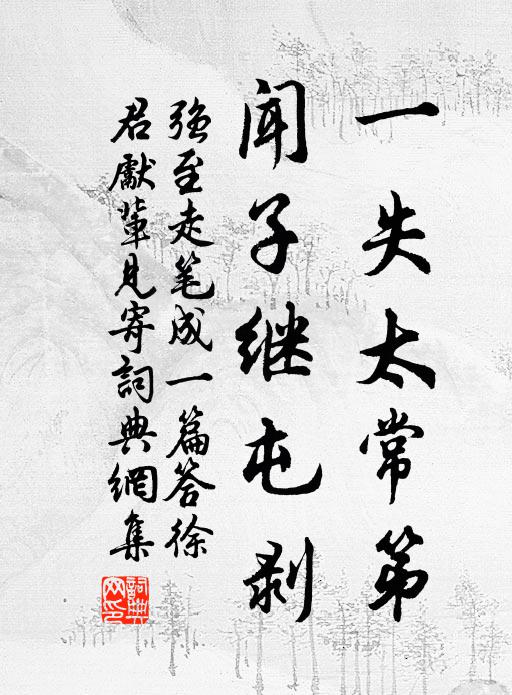 一失太常第
闻子继屯剥
强至走笔成一篇答徐
君献辈见寄詞典網集